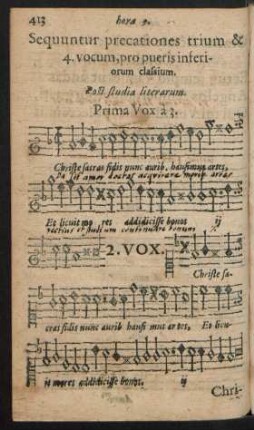 413 hora 9.
Sequuntur precationes trium &
4. vocum, pro pueris inferi-
orum classium.
Post studia literarum.
Prima Vox à 3.
Christe sacras fidis nunc aurib. hausimus artes,
Et licuit mo res addidicisse bonos ij
rectius et studium continuare bonum
2. VOX.
Christe sa-
cras fidis nunc aurib hausi mus artes, Et licu-
it mores addidicisse bonos, ij
Chri-